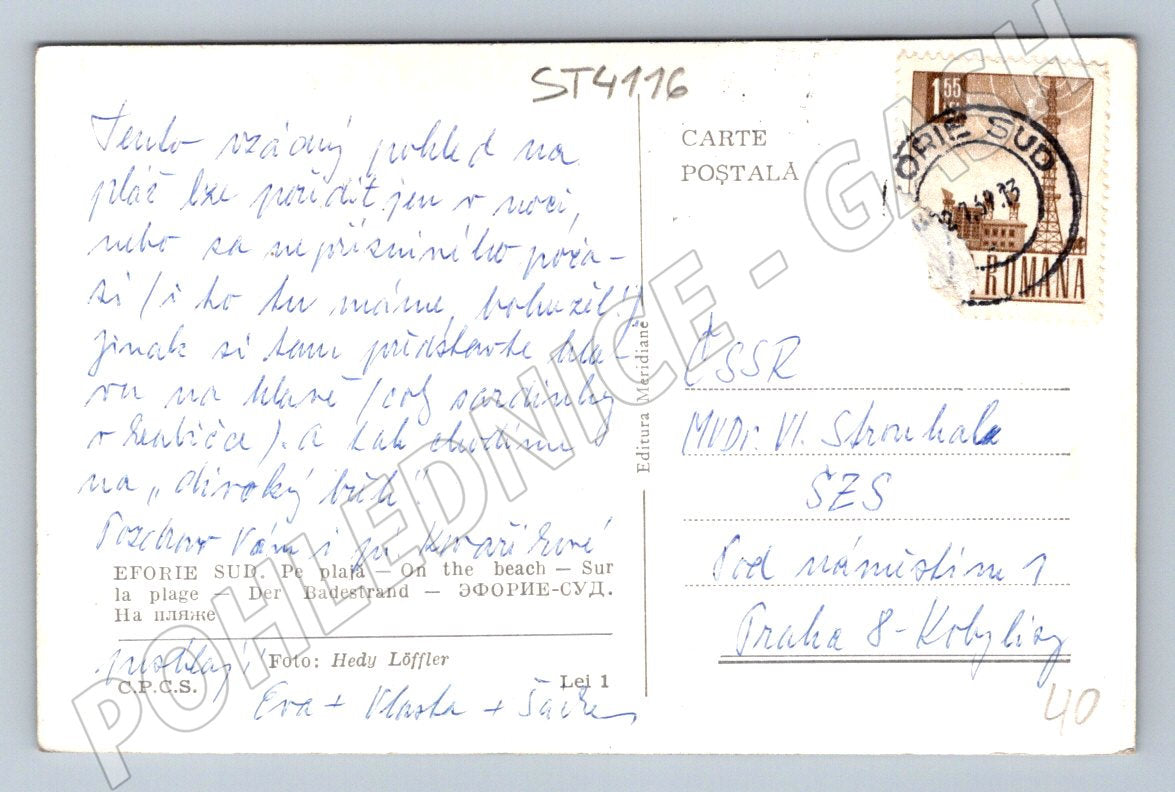 ST4116
Tento vzácný pohled na
pláž lze pořídit jen v noci,
nebo za nepříznivého poča-
sí (i to tu máme, bohužel!).
Jinak si tam představte hla-
vu na hlavě (coby sardinky
v krabičce). A tak chodíme
na „divoký břeh".
Pozdrav Vám i pí Kovaříkové
EFORIE SUD. Pe plajă — On the beach — Sur
la plage — Der Badestrand — ЭФОРИЕ-СУД.
На пляже
posílají
Foto: Hedy Löffler
C.P.C.S.
Lei 1
Eva + Vlasta +
Editura Meridiane
CARTE
POȘTALĂ
1,55
LEI
ROMANA
EFORIE SUD
ČSSR
MVDr. Vl. Strouhala
SZS
Pod náměstím 1
Praha 8 - Kobylisy
40
POHLEDNICE - GASH